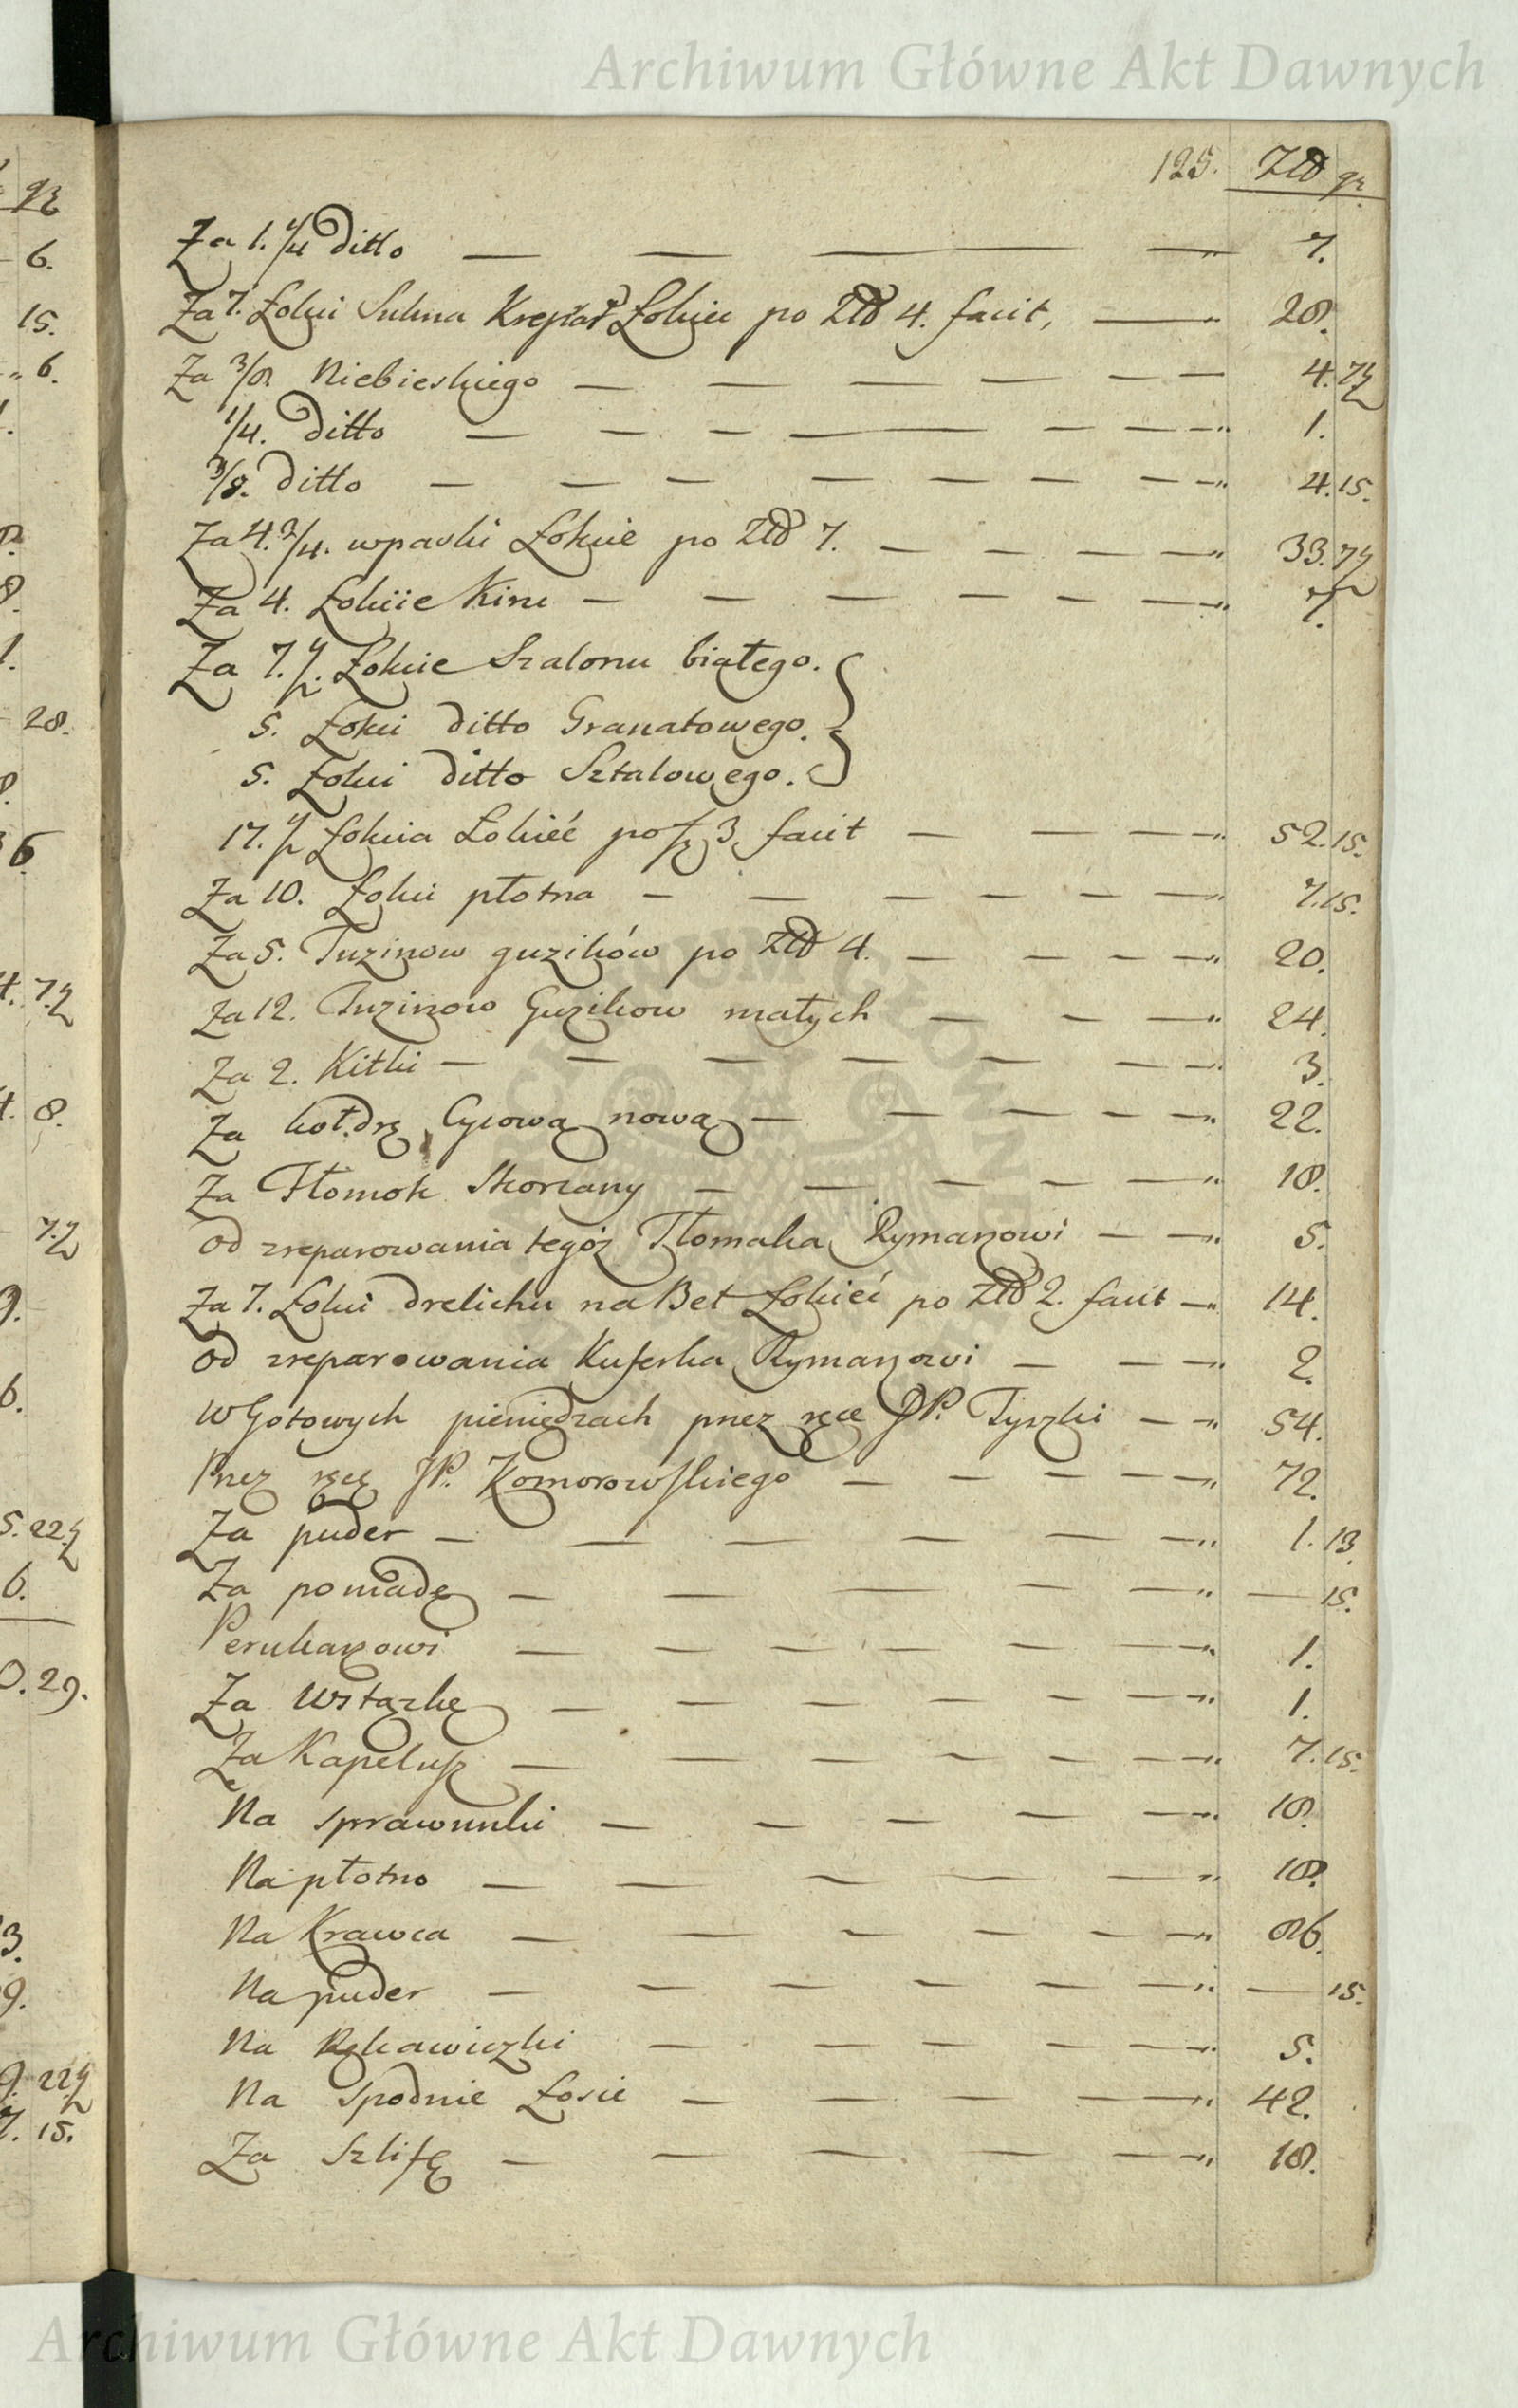 Archiwum Główne Akt Dawnych
125. Złł gr
Za 1. 1/4 ditto — 7.
Za 7. Łokci Sukna Krepiat Łokieć po Złł 4. facit, — 28.
Za 3/8 Niebieskiego — 4. 7½
1/4. ditto — 1.
3/8. ditto — 4. 15.
Za 4. 3/4. wpaski Łokcie po Złł 7. — 33. 7½
Za 4. Łokcie Kiru — 7.
Za 7. ½. Łokcie Szalonu białego.
5. Łokci ditto Granatowego.
5. Łokci ditto Sztalowego.
17. ½ Łokcia Łokieć po fz 3 facit — 52. 15.
Za 10. Łokci płotna — 7. 15.
Za 5. Tuzinow guzików po Złł 4. — 20.
Za 12. Tuzinow Guzikow małych — 24.
Za 2. Kitki — 3.
Za kołdrę Cycową nową — 22.
Za Tłomok Skorzany — 18.
od zreparowania tegóż Tłomaka Rymarzowi — 5.
Za 7. Łokci drelichu na Bet Łokieć po Złł 2. facit — 14.
od zreparowania Kuferka Rymarzowi — 2.
W Gotowych pieniędzach przez ręce JP. Tyszki — 54.
Przez ręce JP. Komorowskiego — 72.
Za puder — 1. 13.
Za pomadę — — 15.
Perukarzowi — 1.
Za Wstążkę — 1.
Za Kapelusz — 7. 15.
Na sprawunki — 18.
Na płotno — 18.
Na Krawca — 86.
Na puder — — 15.
Na Rękawiczki — 5.
Na Spodnie Łosie — 42.
Za Szlifę — 18.
gr
6.
15.
6.
28.
6
7.½
8.
7.½
9.
6.
5. 22½
6.
0. 29.
3.
9.
9. 22½
7. 15.
Archiwum Główne Akt Dawnych